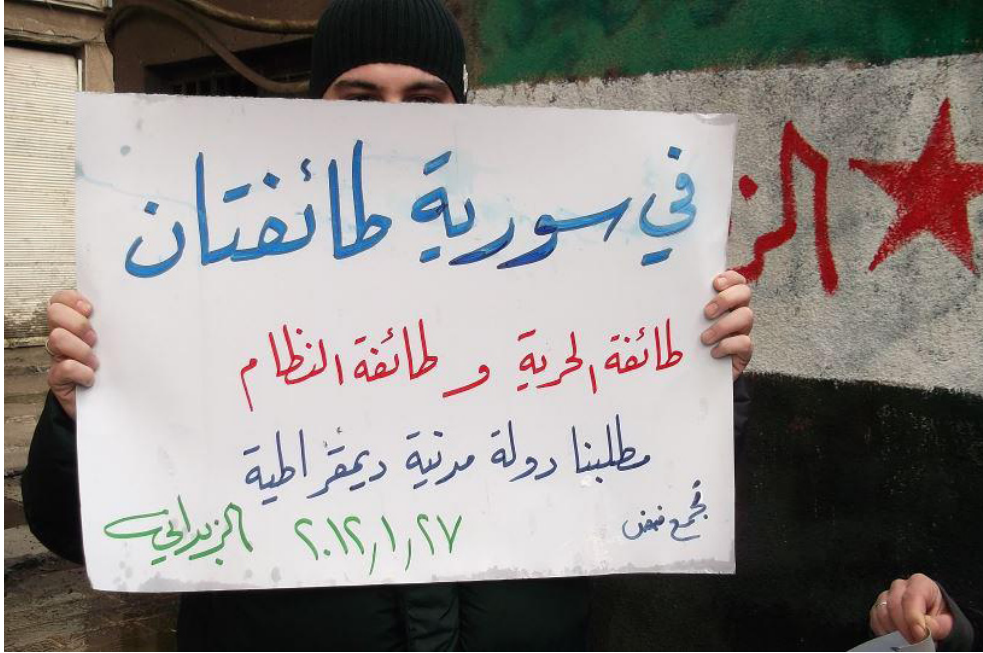 في سورية طائفتان
طائفة الحرية و طائفة النظام
مطلبنا دولة مدنية ديمقراطية
تجمع نبض
٢٧/١/٢٠١٢ الزبداني
الز